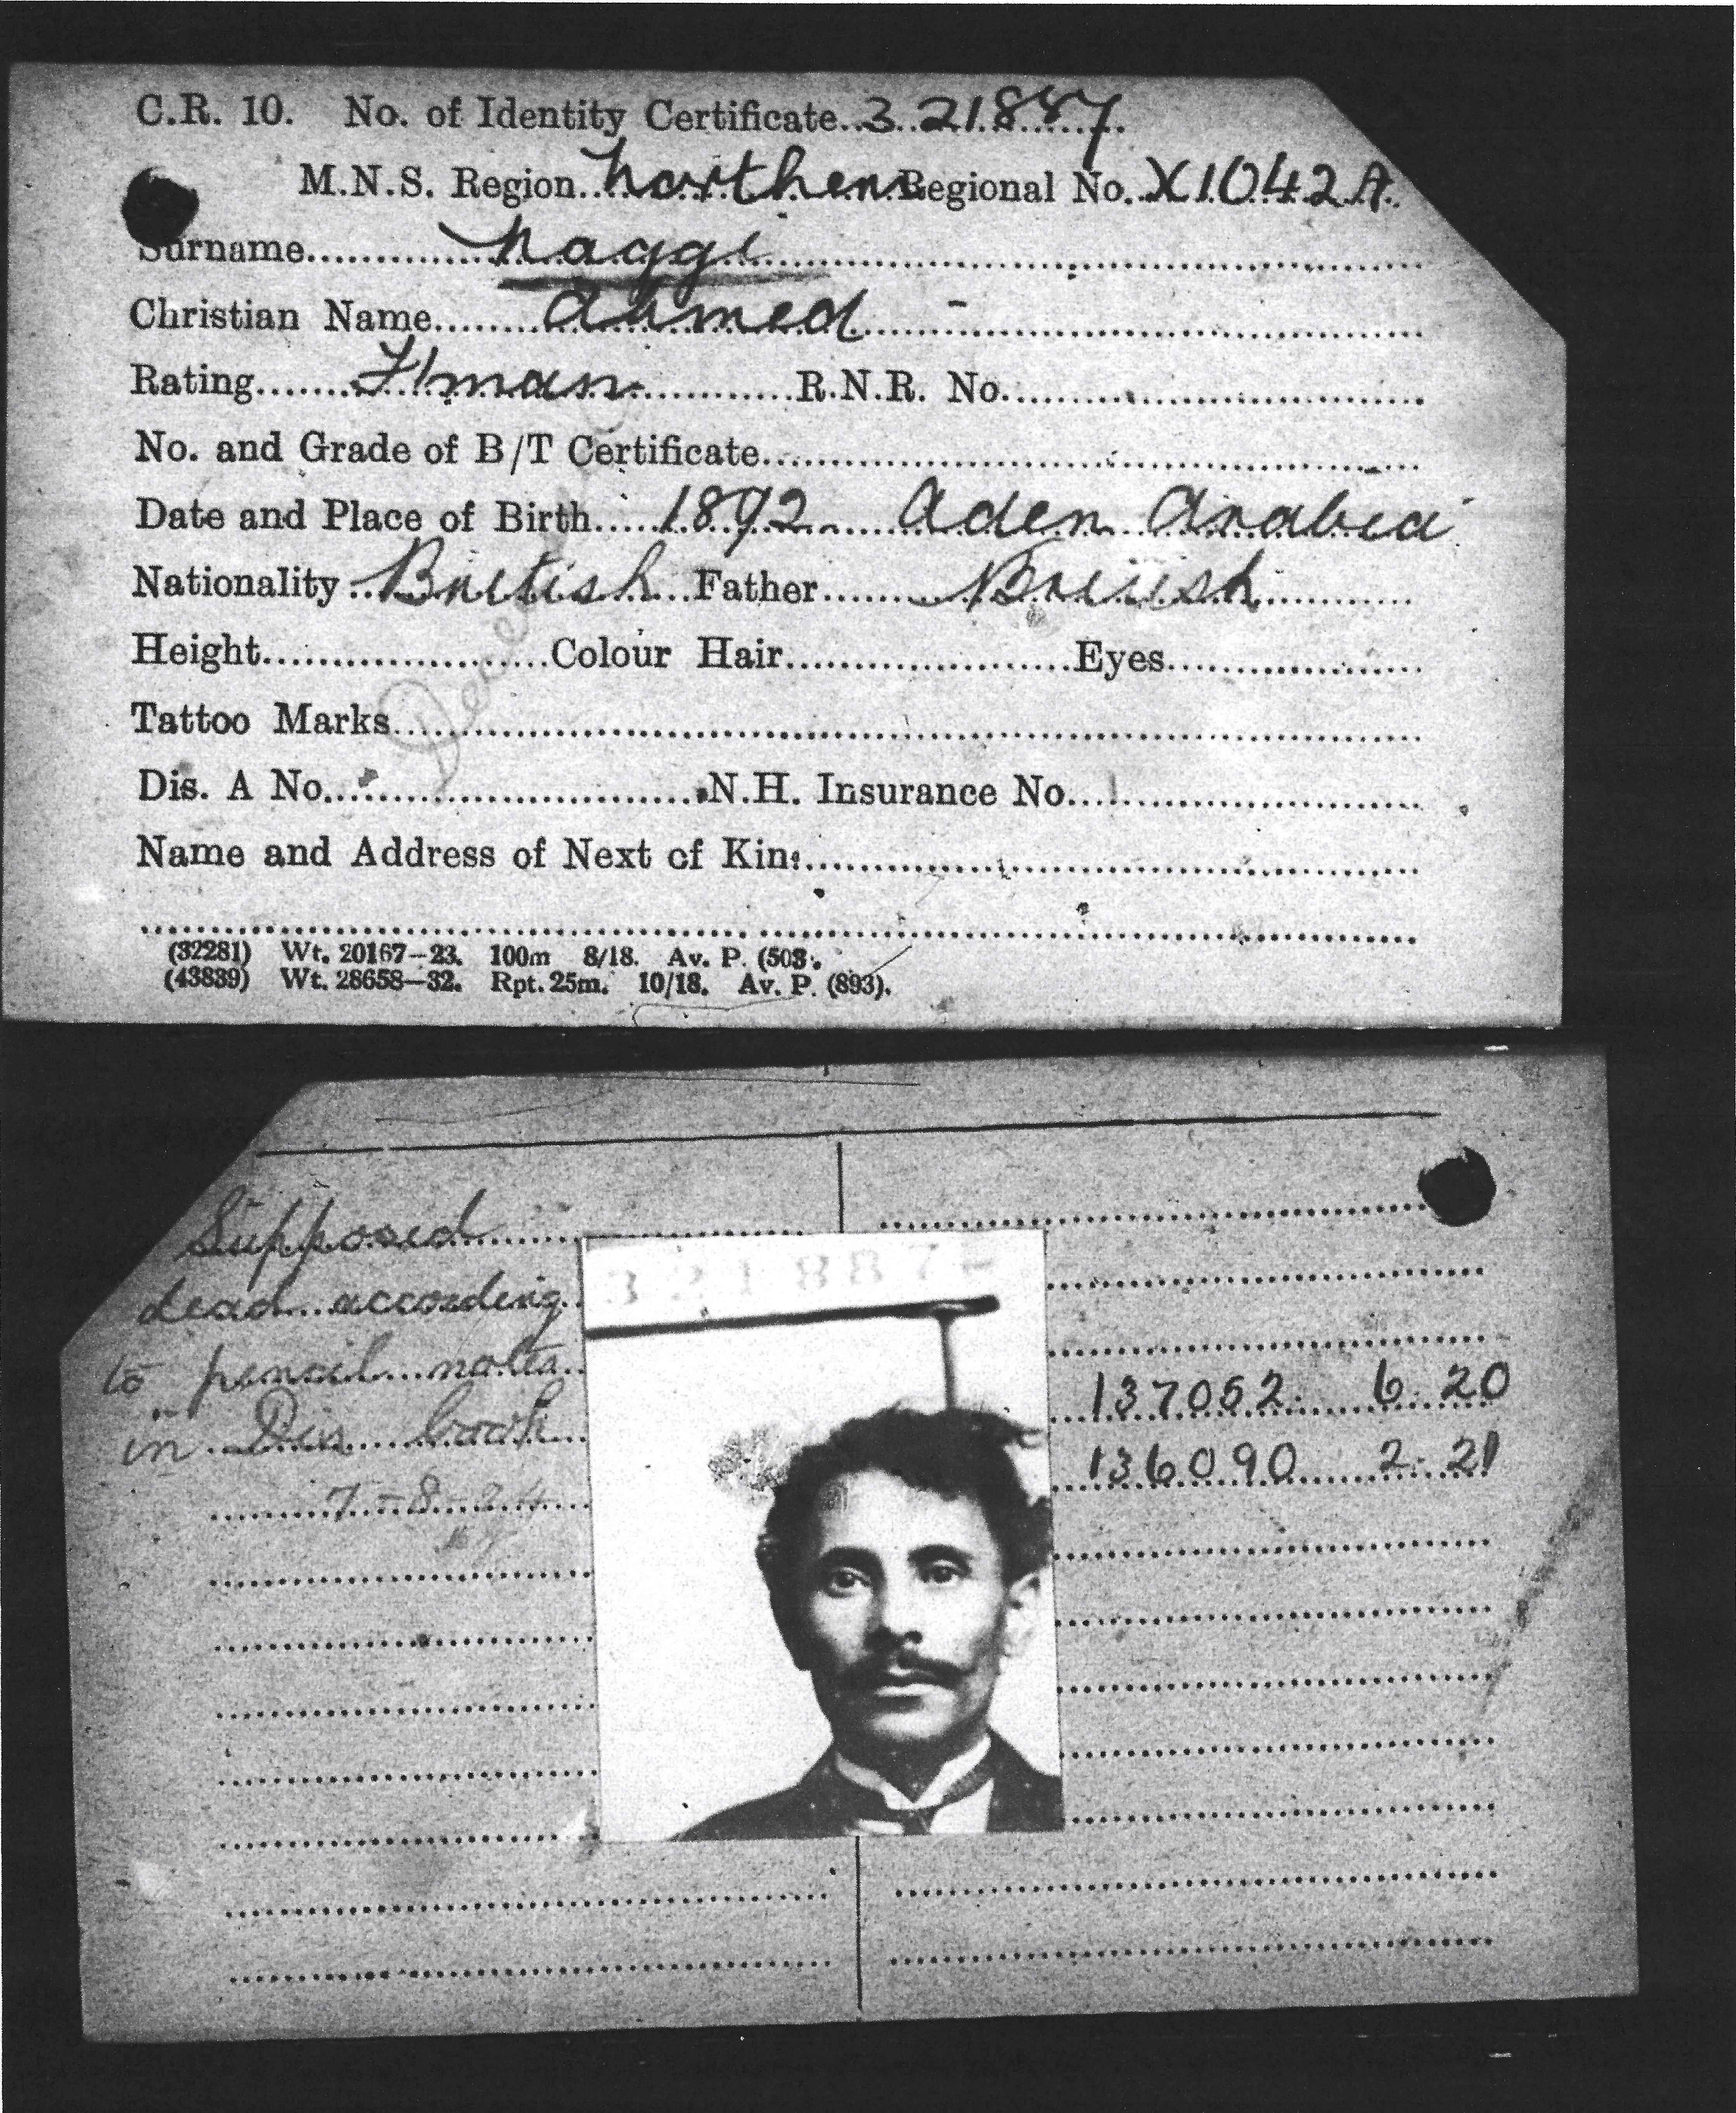 C.R. 10. No. of Identity Certificate..3 21887
M.N.S. Region..Northern Regional No. X1042A.
Surname..............Naggi
Christian Name........Ahmed -
Rating.......F/man............R.N.R. No.
No. and Grade of B/T Certificate
Date and Place of Birth.....1892.....Aden Arabia
Nationality..British..Father.......British
Height....................Colour Hair....................Eyes
Tattoo Marks
Dis. A No.....................N.H. Insurance No.
Name and Address of Next of Kin:
(32281) Wt. 20167—23. 100m 8/18. Av. P. (503).
(43839) Wt. 28658—32. Rpt. 25m. 10/18. Av. P. (893).
Supposed
dead according
to pencil notes
in Dis book
7-8-24
137052. 6. 20
136090 2. 21